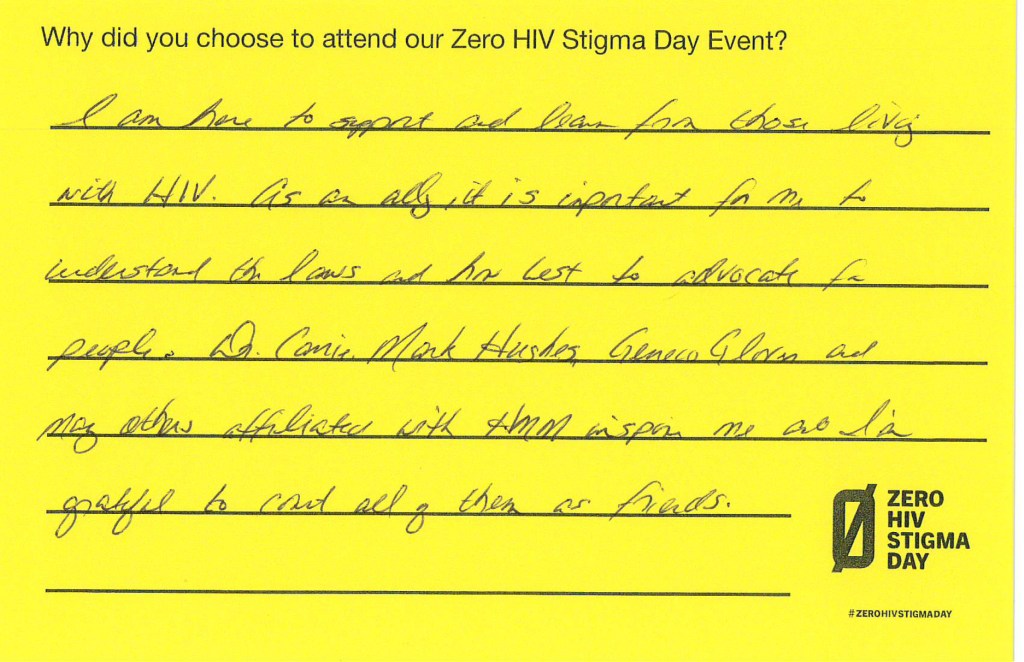 Why did you choose to attend our Zero HIV Stigma Day Event?
I am here to support and learn from those living
with HIV. As an ally, it is important for me to
understand the laws and how best to advocate for
people. Dr. Carrie, Mark Hughes, Geneco Glover and
many others affiliated with HMM inspire me and I am
grateful to count all of them as friends.
ZERO
HIV
STIGMA
DAY
#ZEROHIVSTIGMADAY